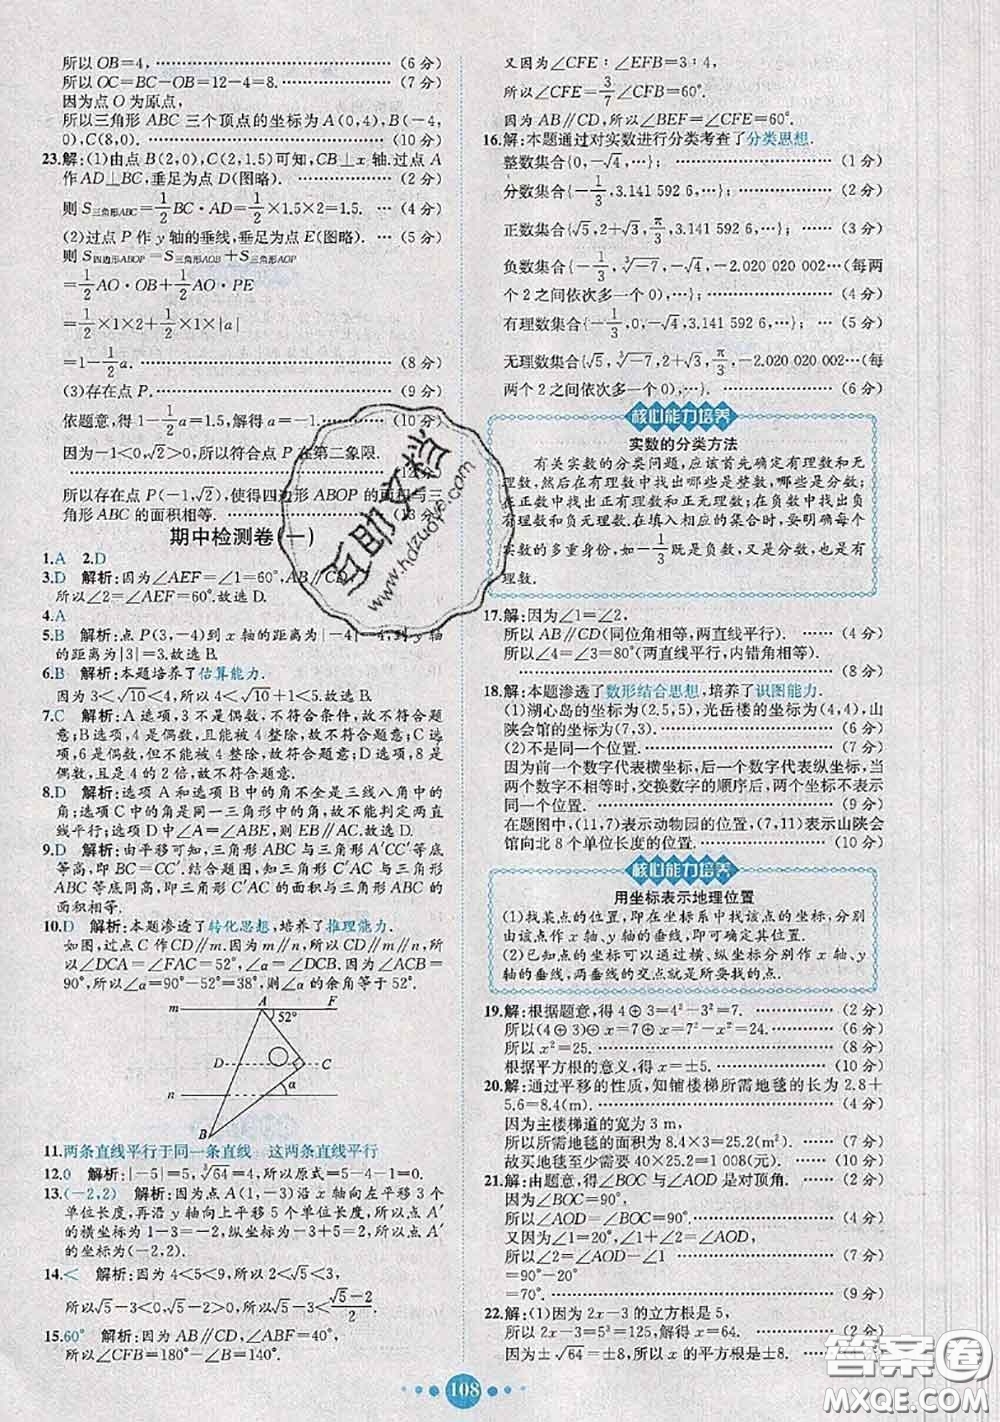 所以OB=4,……(6分)
所以OC=BC-OB=12-4=8.……(7分)
因为点O为原点,
所以三角形ABC三个顶点的坐标为A(0,4),B(-4,
0),C(8,0).……(8分)
23.解:(1)由点B(2,0),C(2,1.5)可知,CB⊥x轴.过点A
作AD⊥BC,垂足为点D(图略).……(2分)
则S三角形ABC=1/2BC·AD=1/2×1.5×2=1.5.…(4分)
(2)过点P作y轴的垂线,垂足为点E(图略).…(5分)
则S四边形ABOP=S三角形AOB+S三角形AOP
=1/2AO·OB+1/2AO·PE
=1/2×1×2+1/2×1×|a|
=1-1/2a.……(8分)
(3)存在点P.……(9分)
依题意,得1-1/2a=1.5,解得a=-1.……(10分)
因为-1<0,√2>0,所以符合点P在第二象限.
所以存在点P(-1,√2),使得四边形ABOP的面积与三
角形ABC的面积相等.……(13分)
期中检测卷(一)
1.A 2.D
3.D 解析:因为∠AEF=∠1=60°,AB∥CD,
所以∠2=∠AEF=60°.故选D.
4.A
5.B 解析:点P(3,-4)到x轴的距离为|-4|=4,到y轴
的距离为|3|=3.故选B.
6.B 解析:本题培养了估算能力.
因为3<√10<4,所以4<√10+1<5.故选B.
7.C 解析:A选项,3不是偶数,不符合条件,故不符合题
意;B选项,4是偶数,且能被4整除,故不符合题意;C选
项,6是偶数,但不能被4整除,故符合题意;D选项,8是
偶数,且是4的2倍,故不符合题意.
8.D 解析:选项A和选项B中的角不全是三线八角中的
角;选项C中的角是同一三角形中的角,故不能判定两直
线平行;选项D中∠A=∠ABE,则EB∥AC.
9.D 解析:由平移可知,三角形ABC与三角形A′CC′等底
等高,即BC=CC′.结合题图,知三角形C′AC与三角形
ABC等底同高,即三角形C′AC的面积与三角形ABC的
面积相等.
10.D 解析:本题渗透了转化思想,培养了推理能力.
如图,过点C作CD∥m.因为m∥n,所以CD∥m∥n,所
以∠DCA=∠FAC=52°,∠α=∠DCB.因为∠ACB=
90°,所以∠α=90°-52°=38°,则∠α的余角等于52°.
m A F
52°
D C
n α
B
11.两条直线平行于同一条直线 这两条直线平行
12.0 解析:|-5|=5,∛64=4,所以原式=5-4-1=0.
13.(-2,2) 解析:因为点A(1,-3)沿x轴向左平移3个
单位长度,再沿y轴向上平移5个单位长度,所以点A′
的横坐标为1-3=-2,纵坐标为-3+5=2,所以点A′
的坐标为(-2,2).
14.< 解析:因为4<5<9,所以2<√5<3,
所以√5-3<0,√5-2>0,所以√5-3<(√5-2)/2.
15.60° 解析:因为AB∥CD,∠ABF=40°,
所以∠CFB=180°-∠B=140°.
又因为∠CFE:∠EFB=3:4,
所以∠CFE=3/7∠CFB=60°.
因为AB∥CD,所以∠BEF=∠CFE=60°.
16.解:本题通过对实数进行分类考查了分类思想.
整数集合{0,-√4,…};……(1分)
分数集合{-1/3,3.141 592 6,…};……(2分)
正数集合{√5,2+√3,π/3,3.141 592 6,…};……(3分)
负数集合{-1/3,∛-7,-√4,-2.020 020 002…(每两
个2之间依次多一个0),…};……(4分)
有理数集合{-1/3,0,-√4,3.141 592 6,…};……(5分)
无理数集合{√5,∛-7,2+√3,π/3,-2.020 020 002…(每
两个2之间依次多一个0),…}.……(6分)
核心能力培养
实数的分类方法
有关实数的分类问题,应该首先确定有理数和无
理数,然后在有理数中找出哪些是整数,哪些是分数;
在正数中找出正有理数和正无理数;在负数中找出负
有理数和负无理数.在填入相应的集合时,要明确每个
实数的多重身份,如-1/3既是负数,又是分数,也是有
理数.
17.解:因为∠1=∠2,
所以AB∥CD(同位角相等,两直线平行).……(5分)
所以∠4=∠3=80°(两直线平行,内错角相等).
……(8分)
18.解:本题渗透了数形结合思想,培养了识图能力.
(1)湖心岛的坐标为(2.5,5),光岳楼的坐标为(4,4),山
陕会馆的坐标为(7,3).……(6分)
(2)不是同一个位置.……(7分)
因为前一个数字代表横坐标,后一个数字代表纵坐标,当
两个数字不相等时,交换数字的顺序后,两个坐标不表示
同一个位置.……(9分)
在题图中,(11,7)表示动物园的位置,(7,11)表示山陕会
馆向北8个单位长度的位置.……(10分)
核心能力培养
用坐标表示地理位置
(1)找某点的位置,即在坐标系中找该点的坐标,分别
由该点作x轴、y轴的垂线,即可确定其位置.
(2)已知点的坐标可以通过横、纵坐标分别作x轴、y
轴的垂线,两垂线的交点就是所要找的点.
19.解:根据题意,得4⊕3=4²-3²=7.……(2分)
所以(4⊕3)⊕x=7⊕x=7²-x²=24.……(6分)
所以x²=25.……(8分)
根据平方根的意义,得x=±5.……(10分)
20.解:通过平移的性质,知铺楼梯所需地毯的长为2.8+
5.6=8.4(m).……(4分)
因为主楼梯道的宽为3 m,
所以所需地毯的面积为8.4×3=25.2(m²).……(7分)
故买地毯至少需要40×25.2=1 008(元).……(10分)
21.解:由题意,得∠BOC与∠AOD是对顶角.……(2分)
因为∠BOC=90°,
所以∠AOD=∠BOC=90°.……(4分)
又因为∠1=20°,∠AOD=∠1+∠2,
所以∠2=∠AOD-∠1……(7分)
=90°-20°
=70°.……(9分)
22.解:(1)因为2x-3的立方根是5,
所以2x-3=5³=125,解得x=64.……(2分)
因为±√64=±8,所以x的平方根是±8.
互助文档
www.hdzuoye.com
答案圈
MXQE.COM
108